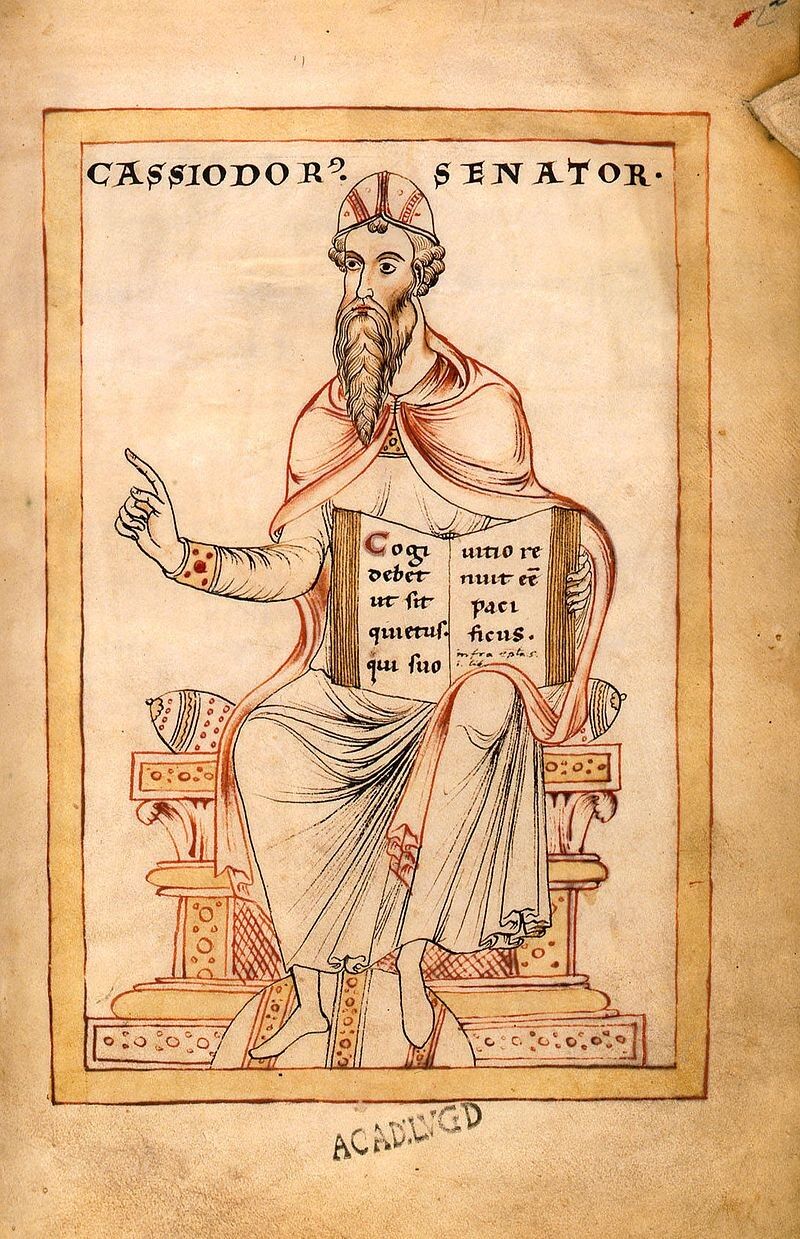 CASSIODORꝰ. SENATOR.
Cogi
debet
ut sit
quietus.
qui suo
uitio re
nuit eē
paci
ficus.
infra epła
ACAD. LVGD